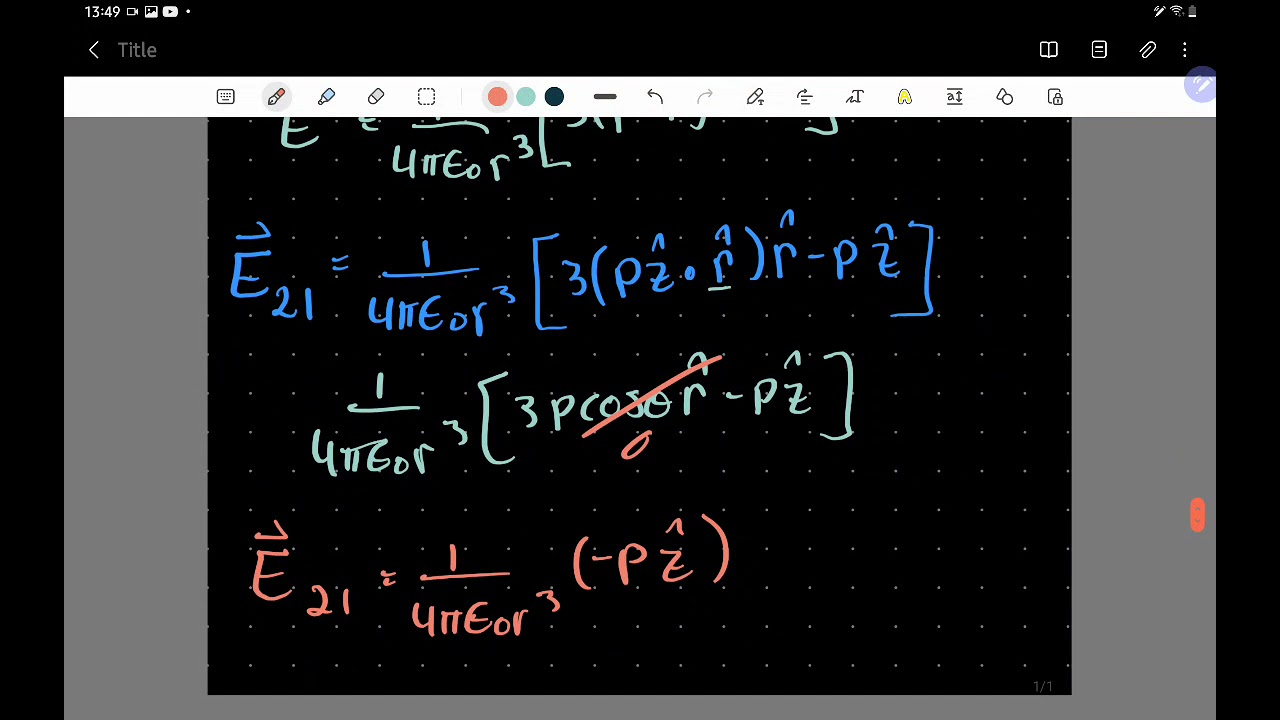 13:49
Title
4πε₀r³
E⃗₂₁ = 1/4πε₀r³ [3(pẑ • r̂)r̂ - pẑ]
1/4πε₀r³ [3pcosθr̂ - pẑ]
0
E⃗₂₁ = 1/4πε₀r³ (-pẑ)
1/1